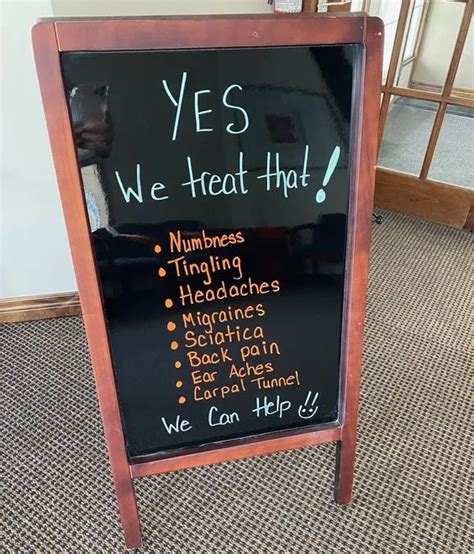 YES
We treat that!
• Numbness
• Tingling
• Headaches
• Migraines
• Sciatica
• Back pain
• Ear Aches
• Carpal Tunnel
We Can Help !!